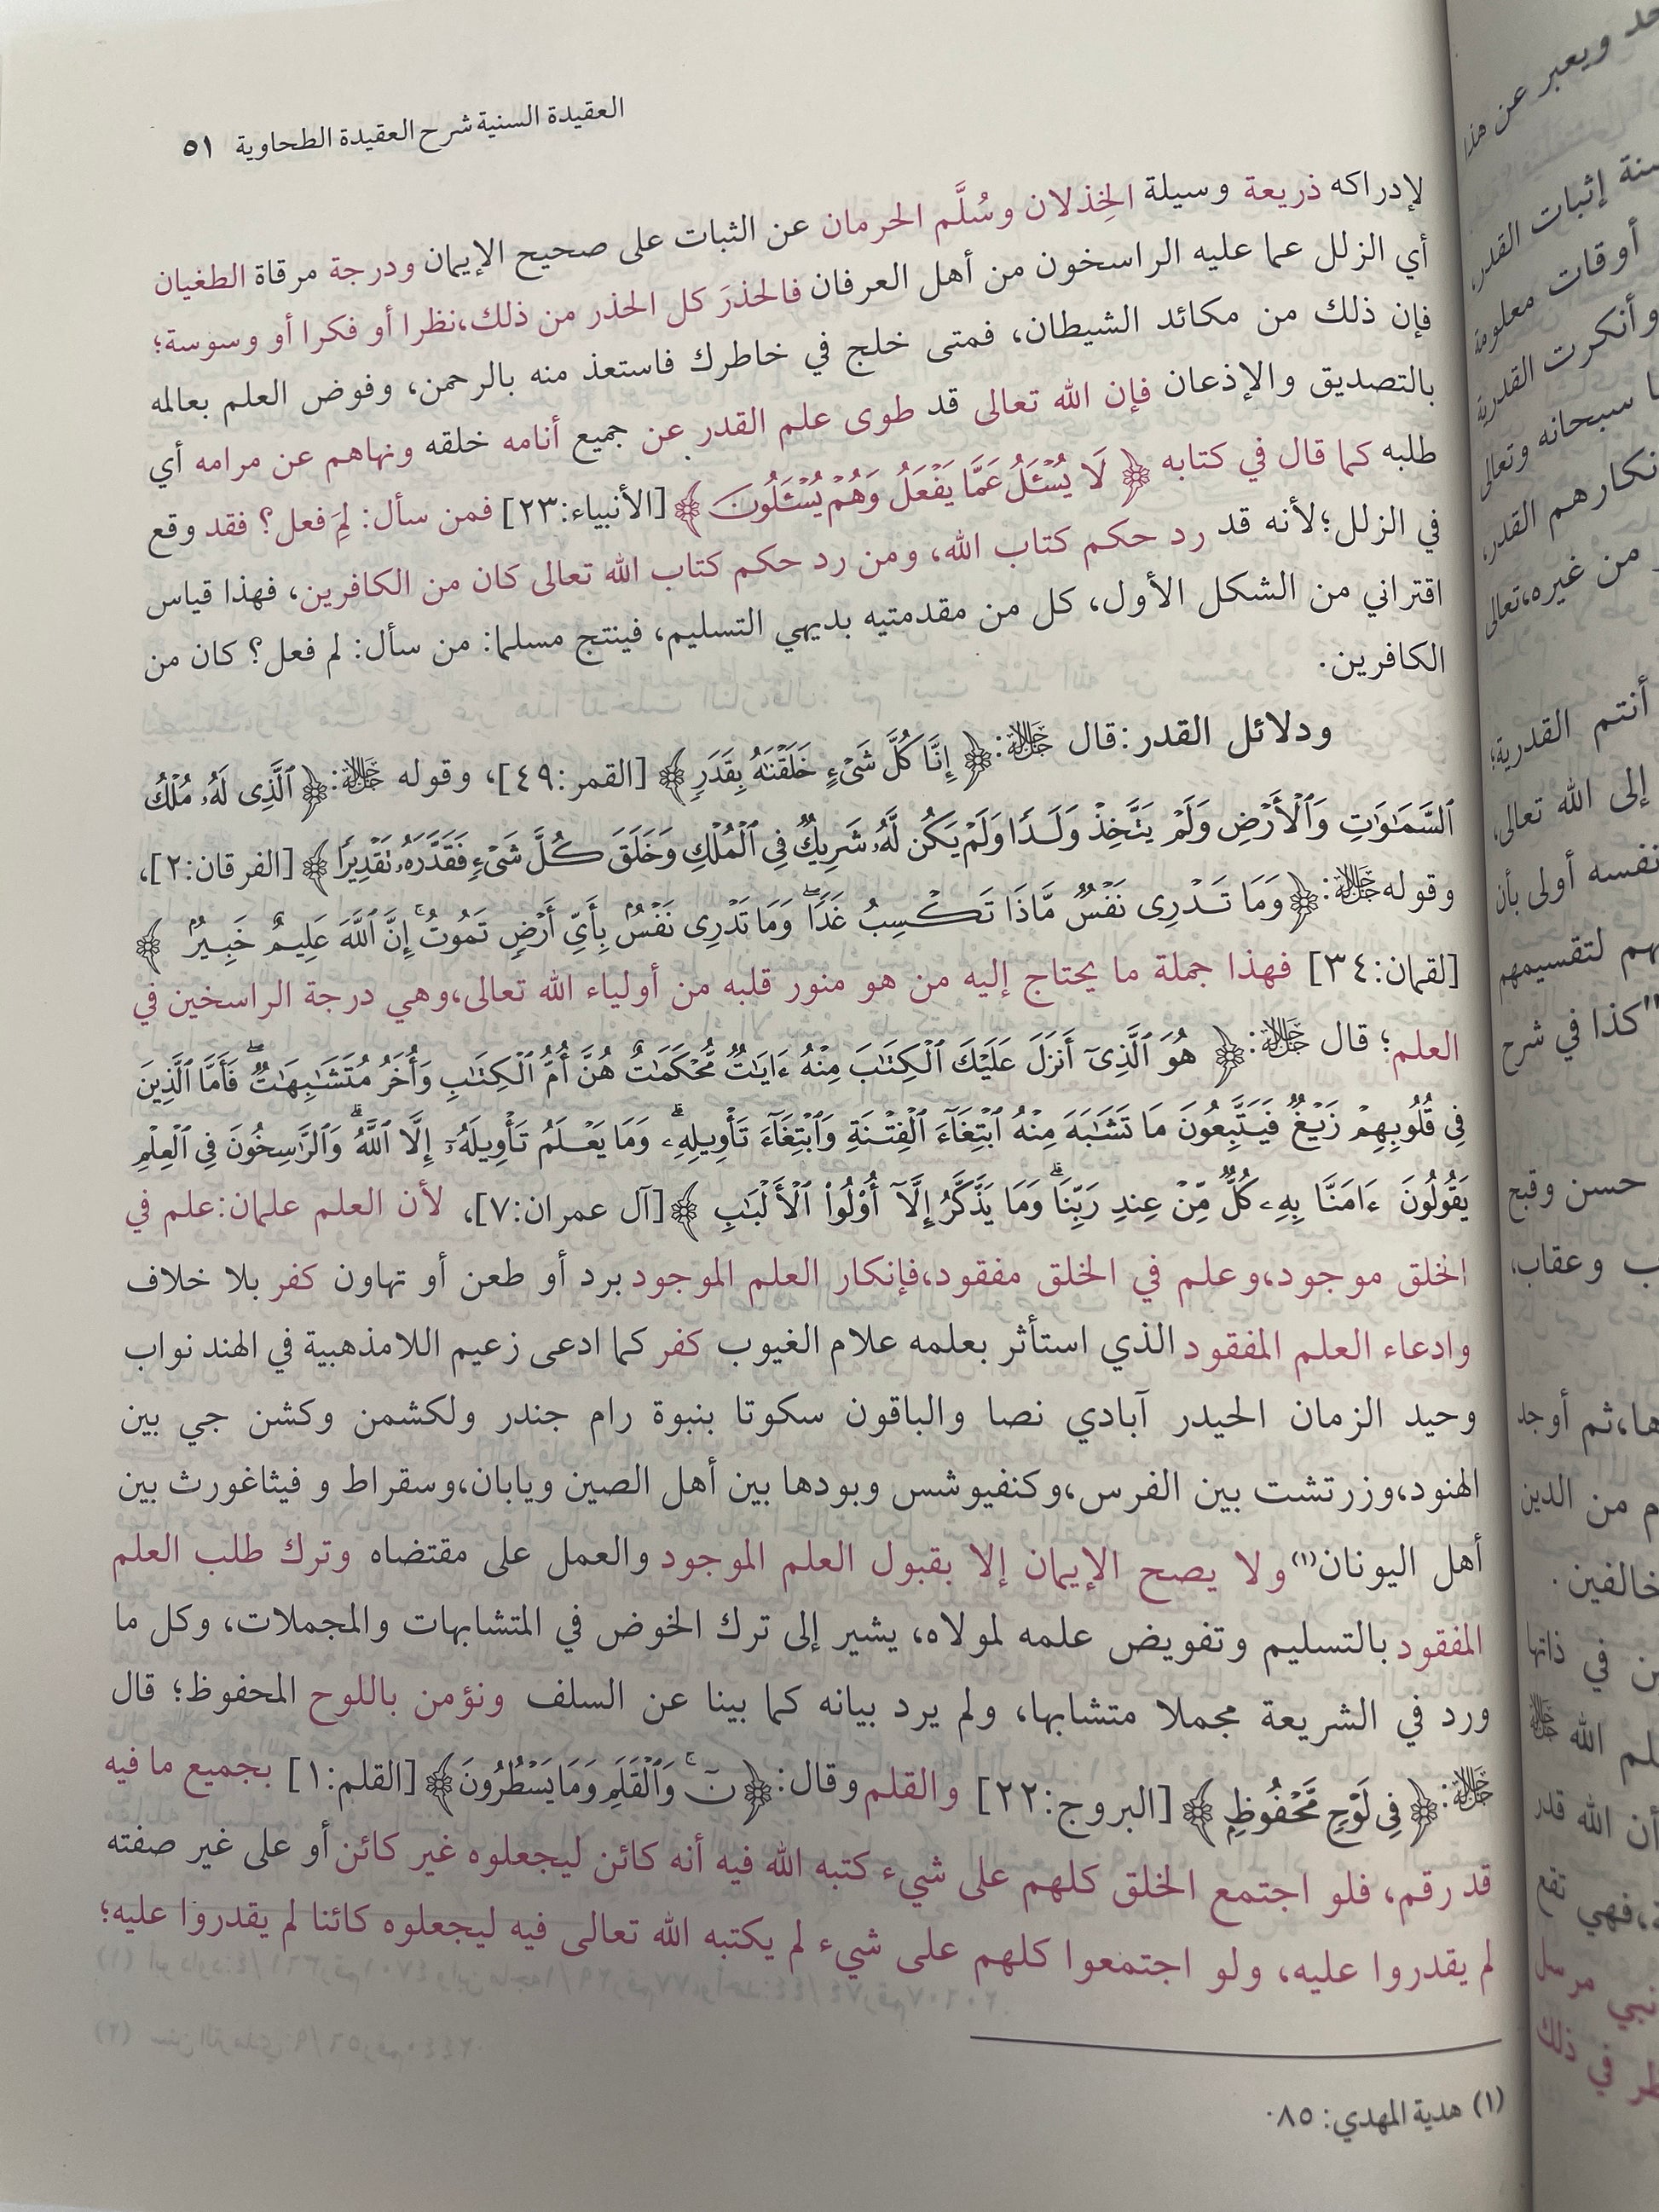 العقيدة السنية شرح العقيدة الطحاوية ٥١
لإدراكه ذريعة وسيلة الخِذلان وسُلَّم الحرمان عن الثبات على صحيح الإيمان ودرجة مرقاة الطغيان
أي الزلل عما عليه الراسخون من أهل العرفان فالحذرَ كل الحذر من ذلك،نظرا أو فكرا أو وسوسة؛
فإن ذلك من مكائد الشيطان، فمتى خلج في خاطرك فاستعذ منه بالرحمن، وفوض العلم بعالمه
بالتصديق والإذعان فإن الله تعالى قد طوى علم القدر عن جميع أنامه خلقه ونهاهم عن مرامه أي
طلبه كما قال في كتابه ﴿ لَا يُسْـَٔلُ عَمَّا يَفْعَلُ وَهُمْ يُسْـَٔلُونَ ﴾ [الأنبياء:٢٣] فمن سأل: لِمَ فعل؟ فقد وقع
في الزلل؛لأنه قد رد حكم كتاب الله، ومن رد حكم كتاب الله تعالى كان من الكافرين، فهذا قياس
اقتراني من الشكل الأول، كل من مقدمتيه بديهي التسليم، فينتج مسلما: من سأل: لم فعل؟ كان من
الكافرين.
ودلائل القدر:قال ﷻ:﴿ إِنَّا كُلَّ شَىْءٍ خَلَقْنَٰهُ بِقَدَرٍ ﴾ [القمر:٤٩]، وقوله ﷻ:﴿ ٱلَّذِى لَهُۥ مُلْكُ
ٱلسَّمَٰوَٰتِ وَٱلْأَرْضِ وَلَمْ يَتَّخِذْ وَلَدًا وَلَمْ يَكُن لَّهُۥ شَرِيكٌ فِى ٱلْمُلْكِ وَخَلَقَ كُلَّ شَىْءٍ فَقَدَّرَهُۥ تَقْدِيرًا ﴾ [الفرقان:٢]،
وقوله ﷻ:﴿ وَمَا تَدْرِى نَفْسٌ مَّاذَا تَكْسِبُ غَدًا ۖ وَمَا تَدْرِى نَفْسٌۢ بِأَىِّ أَرْضٍ تَمُوتُ ۚ إِنَّ ٱللَّهَ عَلِيمٌ خَبِيرٌۢ ﴾
[لقمان:٣٤] فهذا جملة ما يحتاج إليه من هو منور قلبه من أولياء الله تعالى،وهي درجة الراسخين في
العلم؛ قال ﷻ:﴿ هُوَ ٱلَّذِىٓ أَنزَلَ عَلَيْكَ ٱلْكِتَٰبَ مِنْهُ ءَايَٰتٌ مُّحْكَمَٰتٌ هُنَّ أُمُّ ٱلْكِتَٰبِ وَأُخَرُ مُتَشَٰبِهَٰتٌ ۖ فَأَمَّا ٱلَّذِينَ
فِى قُلُوبِهِمْ زَيْغٌ فَيَتَّبِعُونَ مَا تَشَٰبَهَ مِنْهُ ٱبْتِغَآءَ ٱلْفِتْنَةِ وَٱبْتِغَآءَ تَأْوِيلِهِۦ ۗ وَمَا يَعْلَمُ تَأْوِيلَهُۥٓ إِلَّا ٱللَّهُ ۗ وَٱلرَّٰسِخُونَ فِى ٱلْعِلْمِ
يَقُولُونَ ءَامَنَّا بِهِۦ كُلٌّ مِّنْ عِندِ رَبِّنَا ۗ وَمَا يَذَّكَّرُ إِلَّآ أُو۟لُوا۟ ٱلْأَلْبَٰبِ ﴾ [آل عمران:٧]، لأن العلم علمان:علم في
الخلق موجود،وعلم في الخلق مفقود،فإنكار العلم الموجود برد أو طعن أو تهاون كفر بلا خلاف
وادعاء العلم المفقود الذي استأثر بعلمه علام الغيوب كفر كما ادعى زعيم اللامذهبية في الهند نواب
وحيد الزمان الحيدر آبادي نصا والباقون سكوتا بنبوة رام جندر ولكشمن وكشن جي بين
الهنود،وزرتشت بين الفرس،وكنفيوشس وبودها بين أهل الصين ويابان،وسقراط و فيثاغورث بين
أهل اليونان(١) ولا يصح الإيمان إلا بقبول العلم الموجود والعمل على مقتضاه وترك طلب العلم
المفقود بالتسليم وتفويض علمه لمولاه، يشير إلى ترك الخوض في المتشابهات والمجملات، وكل ما
ورد في الشريعة مجملا متشابها، ولم يرد بيانه كما بينا عن السلف ونؤمن باللوح المحفوظ؛ قال
ﷻ:﴿ فِى لَوْحٍ مَّحْفُوظٍۭ ﴾ [البروج:٢٢] والقلم وقال:﴿ نٓ ۚ وَٱلْقَلَمِ وَمَا يَسْطُرُونَ ﴾ [القلم:١] بجميع ما فيه
قد رقم، فلو اجتمع الخلق كلهم على شيء كتبه الله فيه أنه كائن ليجعلوه غير كائن أو على غير صفته
لم يقدروا عليه، ولو اجتمعوا كلهم على شيء لم يكتبه الله تعالى فيه ليجعلوه كائنا لم يقدروا عليه؛
(١) هدية المهدي: ٨٥.
حد ويعبر عن هذا
إثبات القدر،
أوقات معلومة
وأنكرت القدرية
سبحانه وتعالى
إنكارهم القدر،
من غيره،تعالى
أنتم القدرية؛
إلى الله تعالى،
نفسه أولى بأن
لتقسيمهم
"كذا في شرح
حسن وقبح
وعقاب،
ها،ثم أوجد
من الدين
في ذاتها
الله ﷻ
أن الله قدر
فهي تقع
نبي مرسل
في ذلك